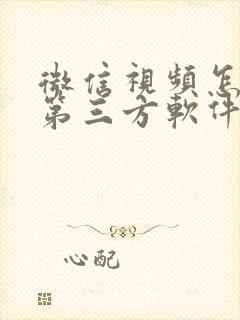 微信視頻怎
第三方軟件
心配